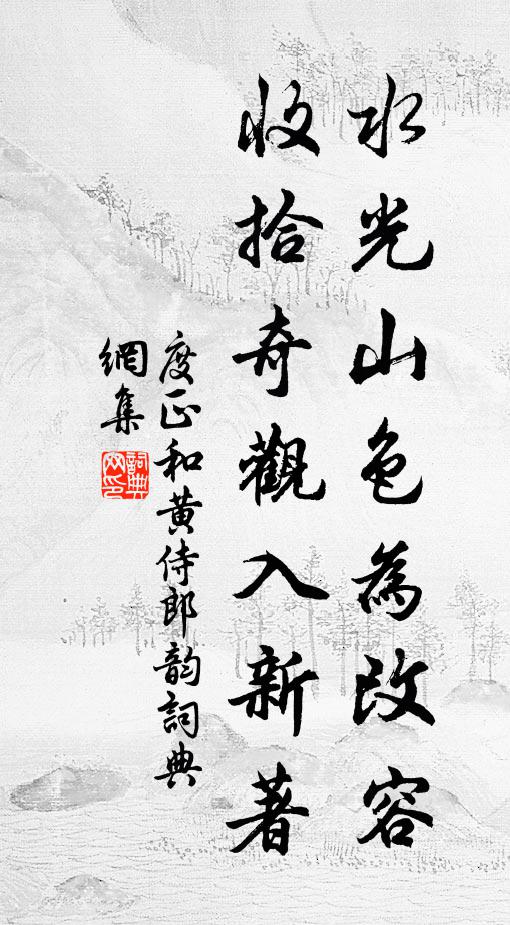 水光山色為改容
收拾奇觀入新著
度正和黃侍郎韵詞典
網集
詞典
网印